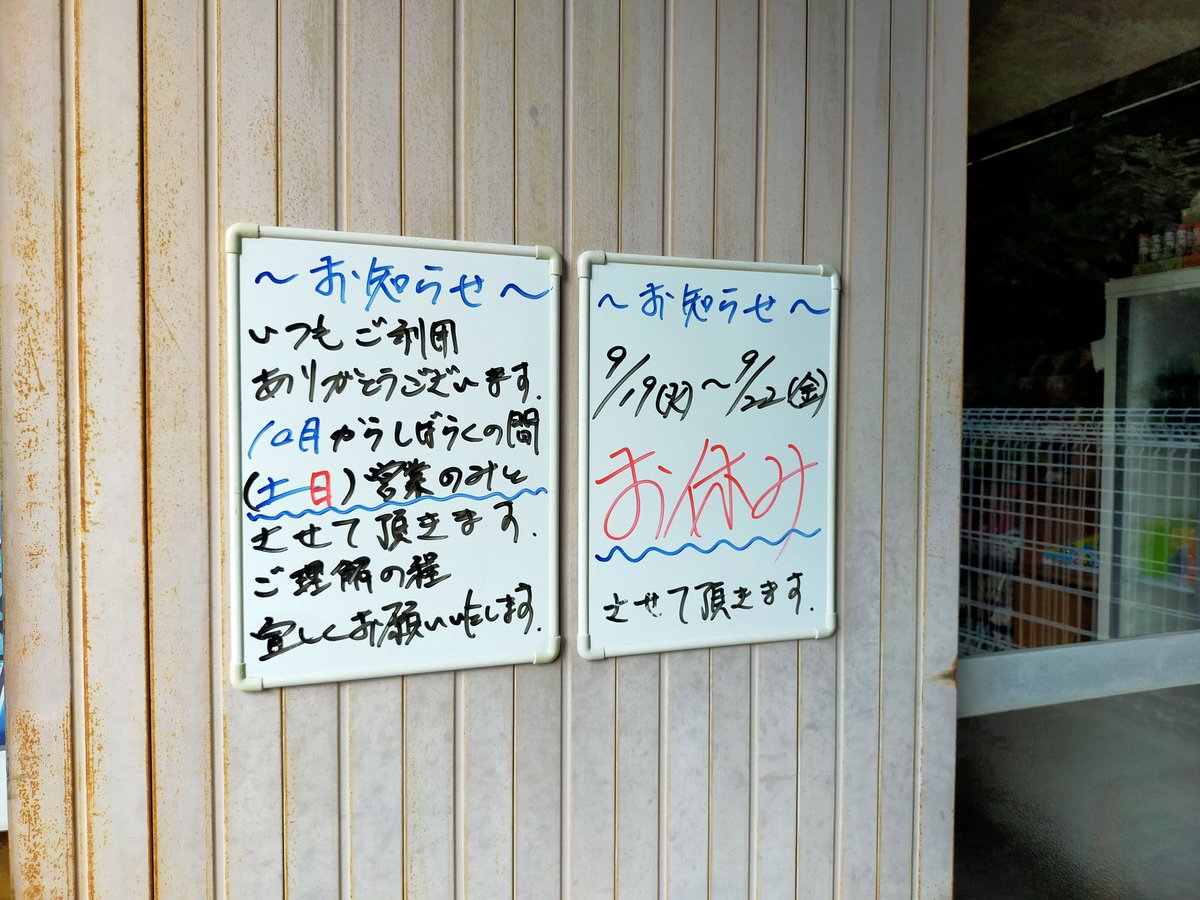 ～お知らせ～
いつもご利用
ありがとうございます.
10月からしばらくの間
(土日)営業のみと
させて頂きます.
ご理解の程
宜しくお願いいたします.
～お知らせ～
9/19(火)～9/22(金)
お休み
させて頂きます.